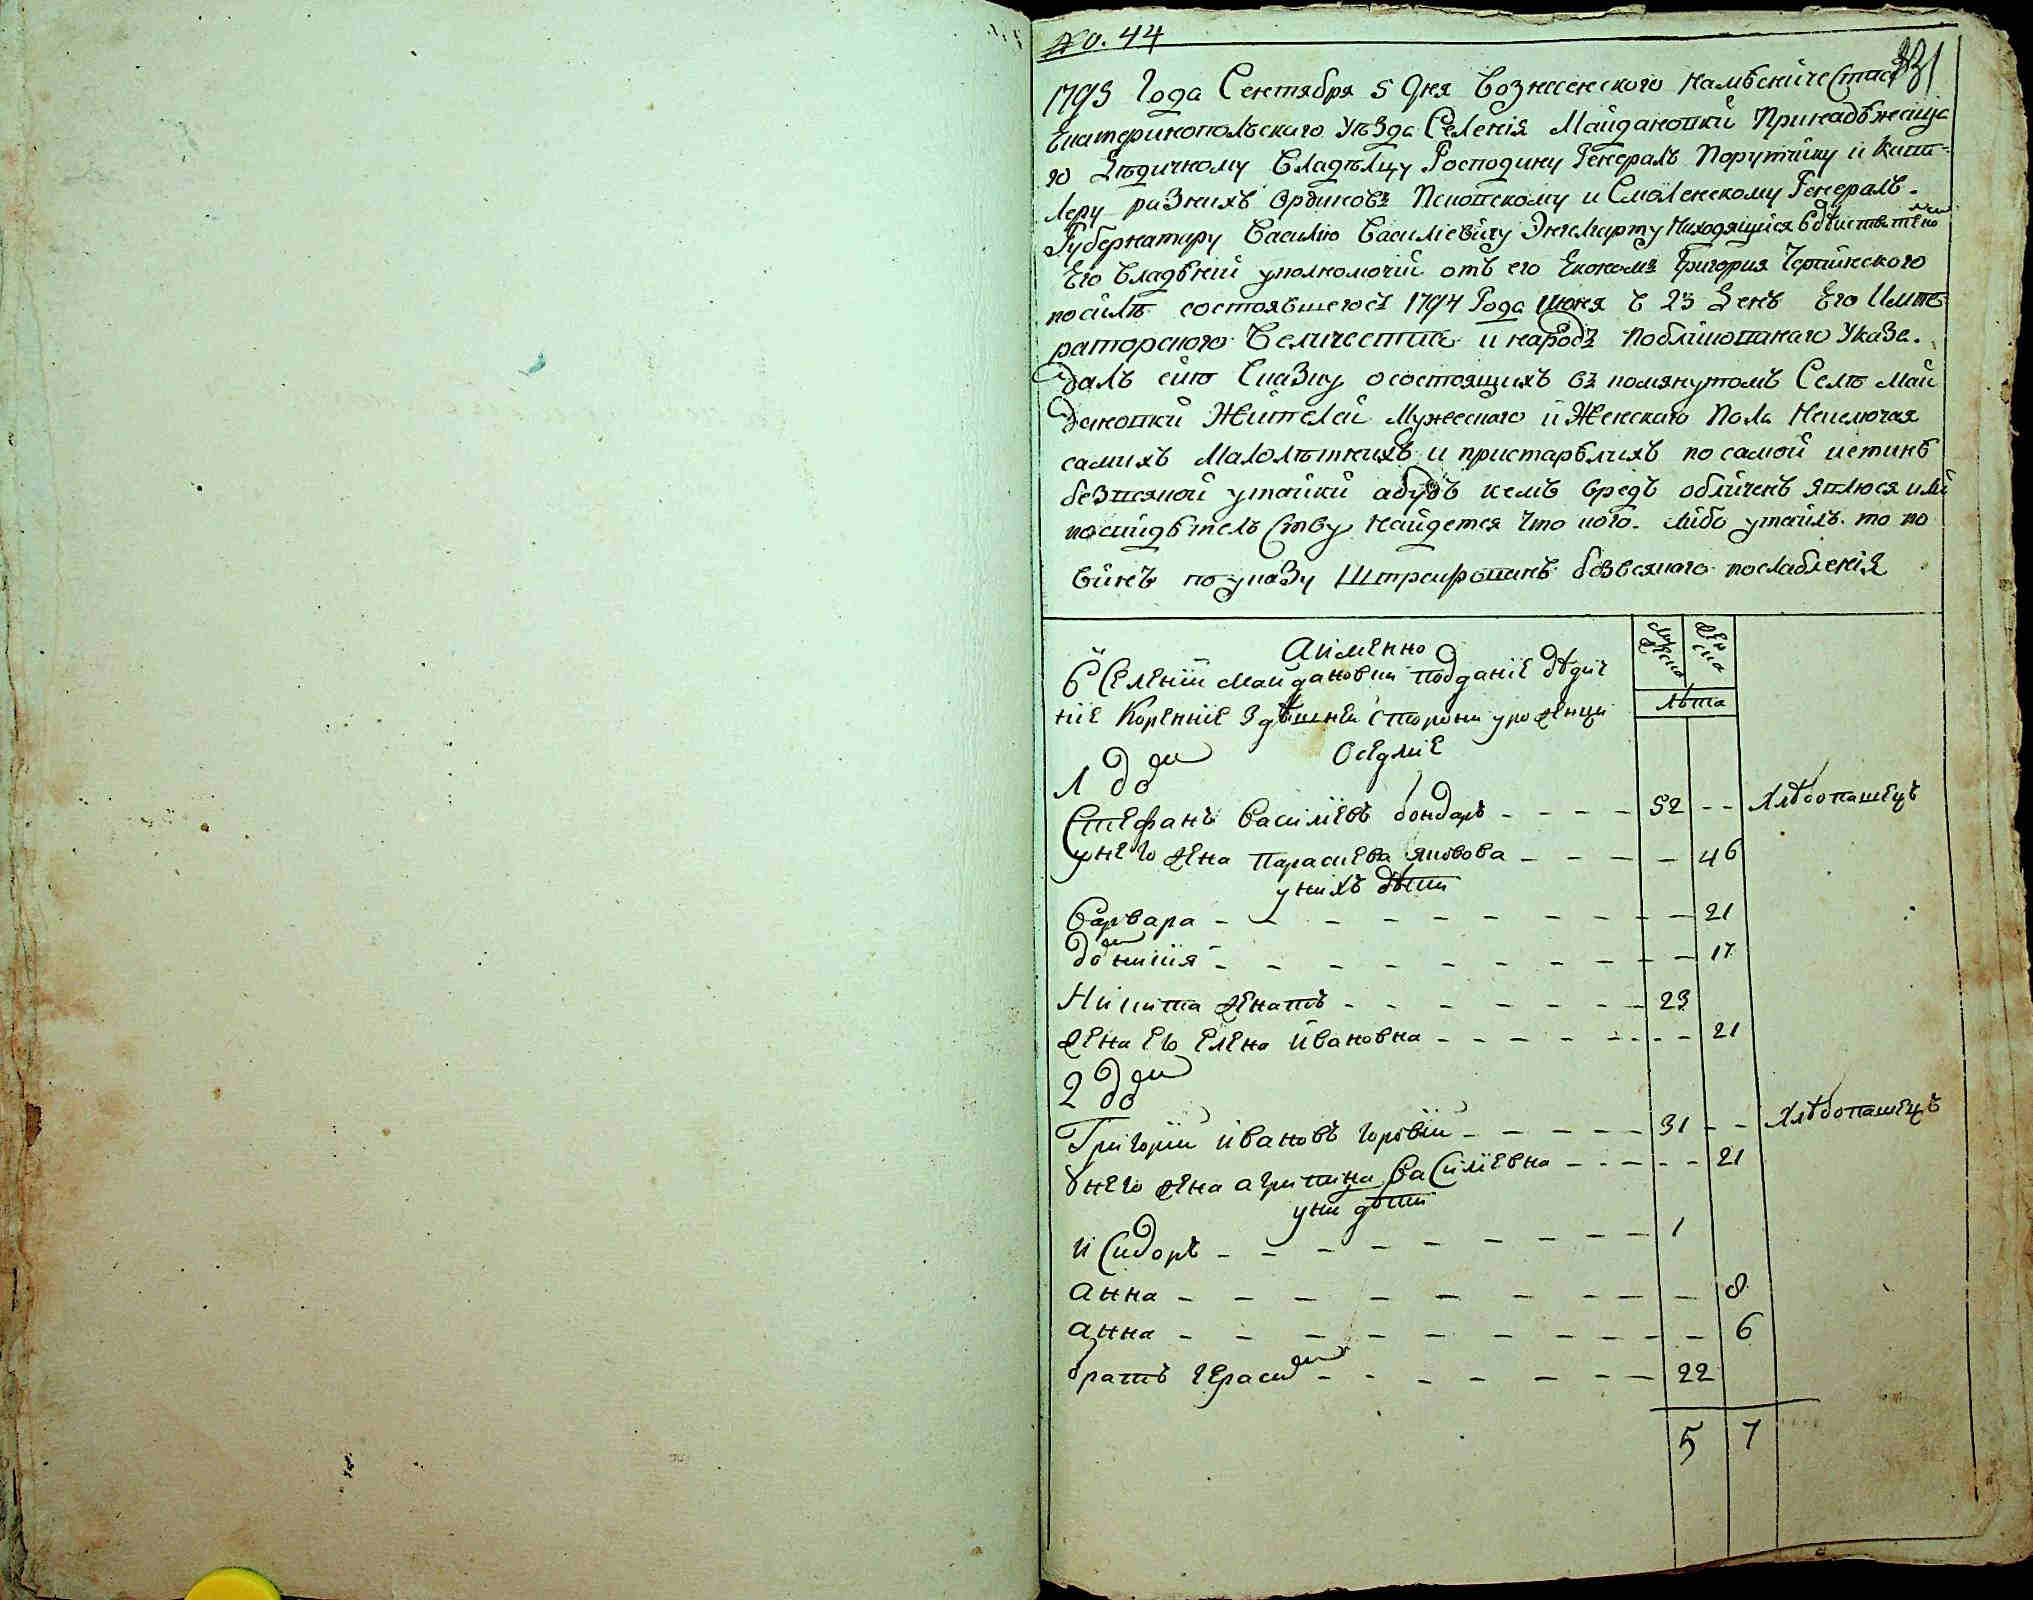 No. 44
331
1795 Года Сентября 5 дня Вознесенского намѣсничества
Екатеринопольскаго уѣзда Селенія Майдановки Принадлежаща
го Дѣдичному Владѣлцу Господину Генералъ Порутчику и Кава
леру разнихъ Ординовъ Псковскому и Смоленскому Генералъ.
Губернатору Василю Василіевичу Энгелгарту Находящийся
Его владѣній уполномочий отъ его Економъ Григория
посилѣ состоявшегось 1794 Года июня в 23 день Его Импе
раторского Величества и народъ поблѣкованаго Указа.
далъ сию Сказку о состоящихъ въ помянутомъ Селѣ Май
дановки Жителей Мужескаго и Женскаго Пола Неисключая
самихъ Малолѣтнихъ и пристарѣлихъ по самой истинѣ
безвсякой утайки абудѣ кемъ вредъ обличенъ явлюся или
посвидѣтельству найдется что кого. либо утаилъ. то по
винъ по указу Штрафованъ безвсякаго послабленія
Аименно
мужеска
женска
В Селении Майдановки подданіе дѣдич
ніе Коренніе здѣшней сторони уроженци
лѣта
Оседліе
1 домъ
Стефанъ Василіевъ бондаръ - - - - 52 - - Хлѣбопашецъ
унего жена параскева яковова - - - - 46
унихъ дѣти
Варвара - - - - - - - - - 21
домникия - - - - - - - - - 17
Никита женатъ - - - - - - - 23
жена его Елена Ивановна - - - - - - - 21
2 домъ
Григорий ивановъ горовий - - - - - 31 - - Хлѣбопашецъ
Унего жена агрипина Василіевна - - - - - 21
уни дѣти
иСидоръ - - - - - - - - 1
анна - - - - - - - - - 8
анна - - - - - - - - - 6
братъ герасим - - - - - - - 22
5 7